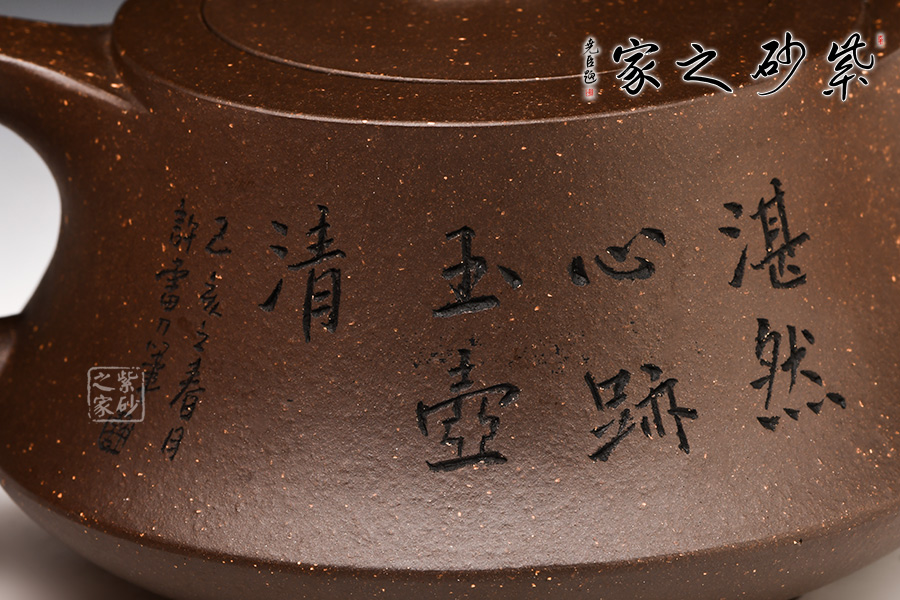 紫砂之家
湛然
心跡
玉壺
清
己亥之春月
許雷刀筆
紫砂之家